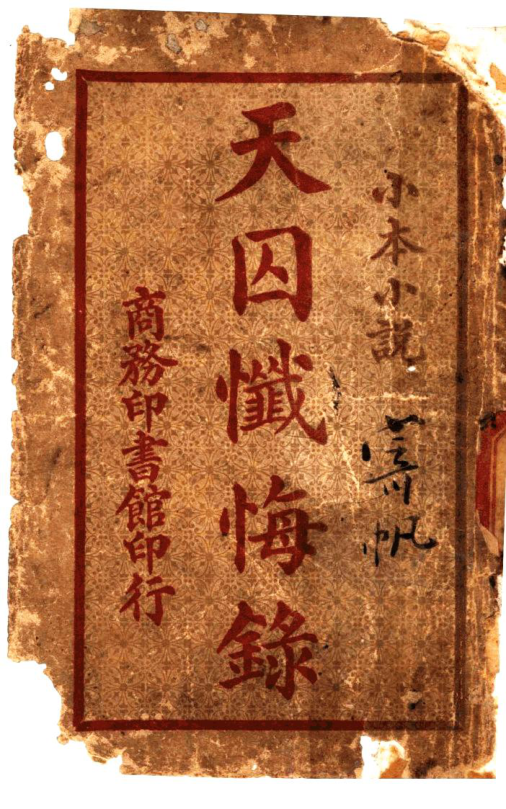 小本小説
天囚懺悔錄
商務印書館印行